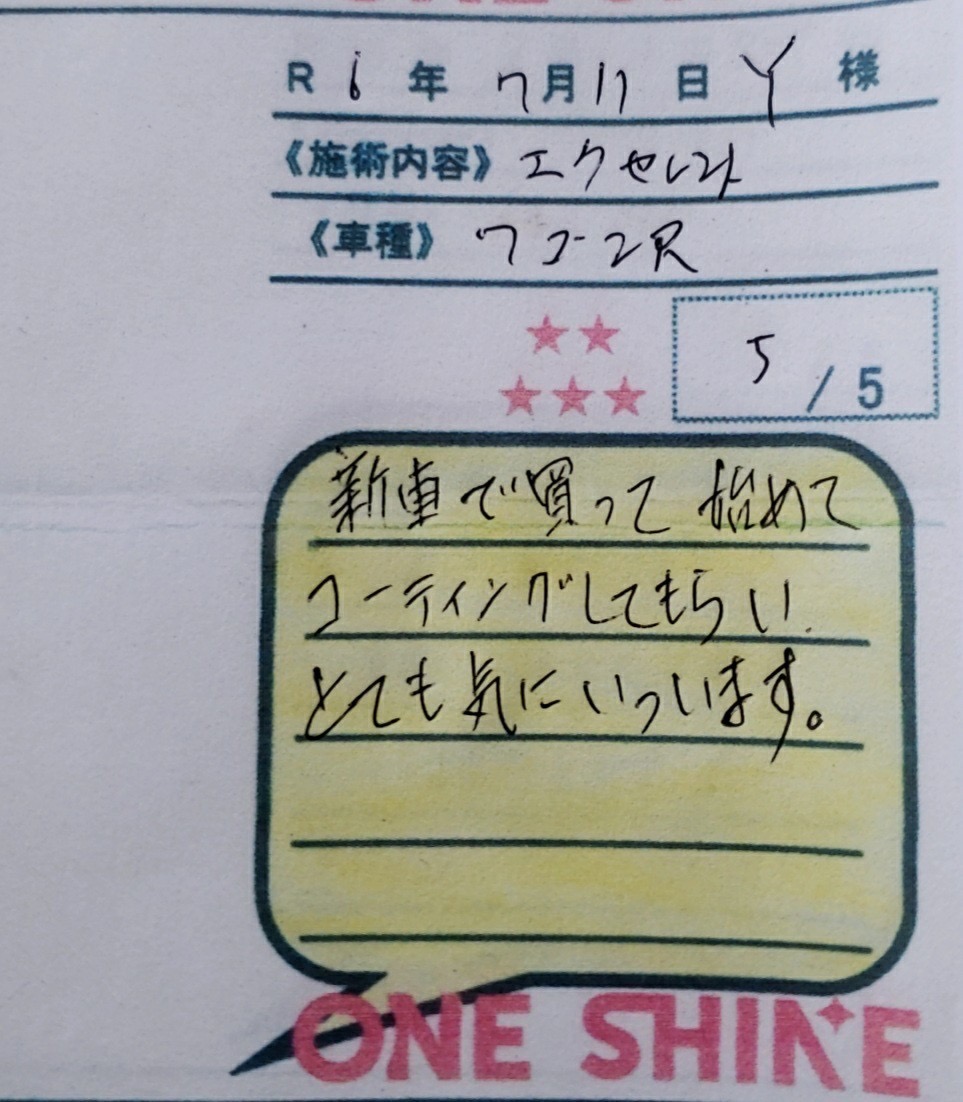 R 6 年 7月17日 Y 様
《施術内容》エクセレント
《車種》ワゴンR
★★
★★★
5 / 5
新車で買って 始めて
コーティングしてもらい
とても気にいっています。
ONE SHINE